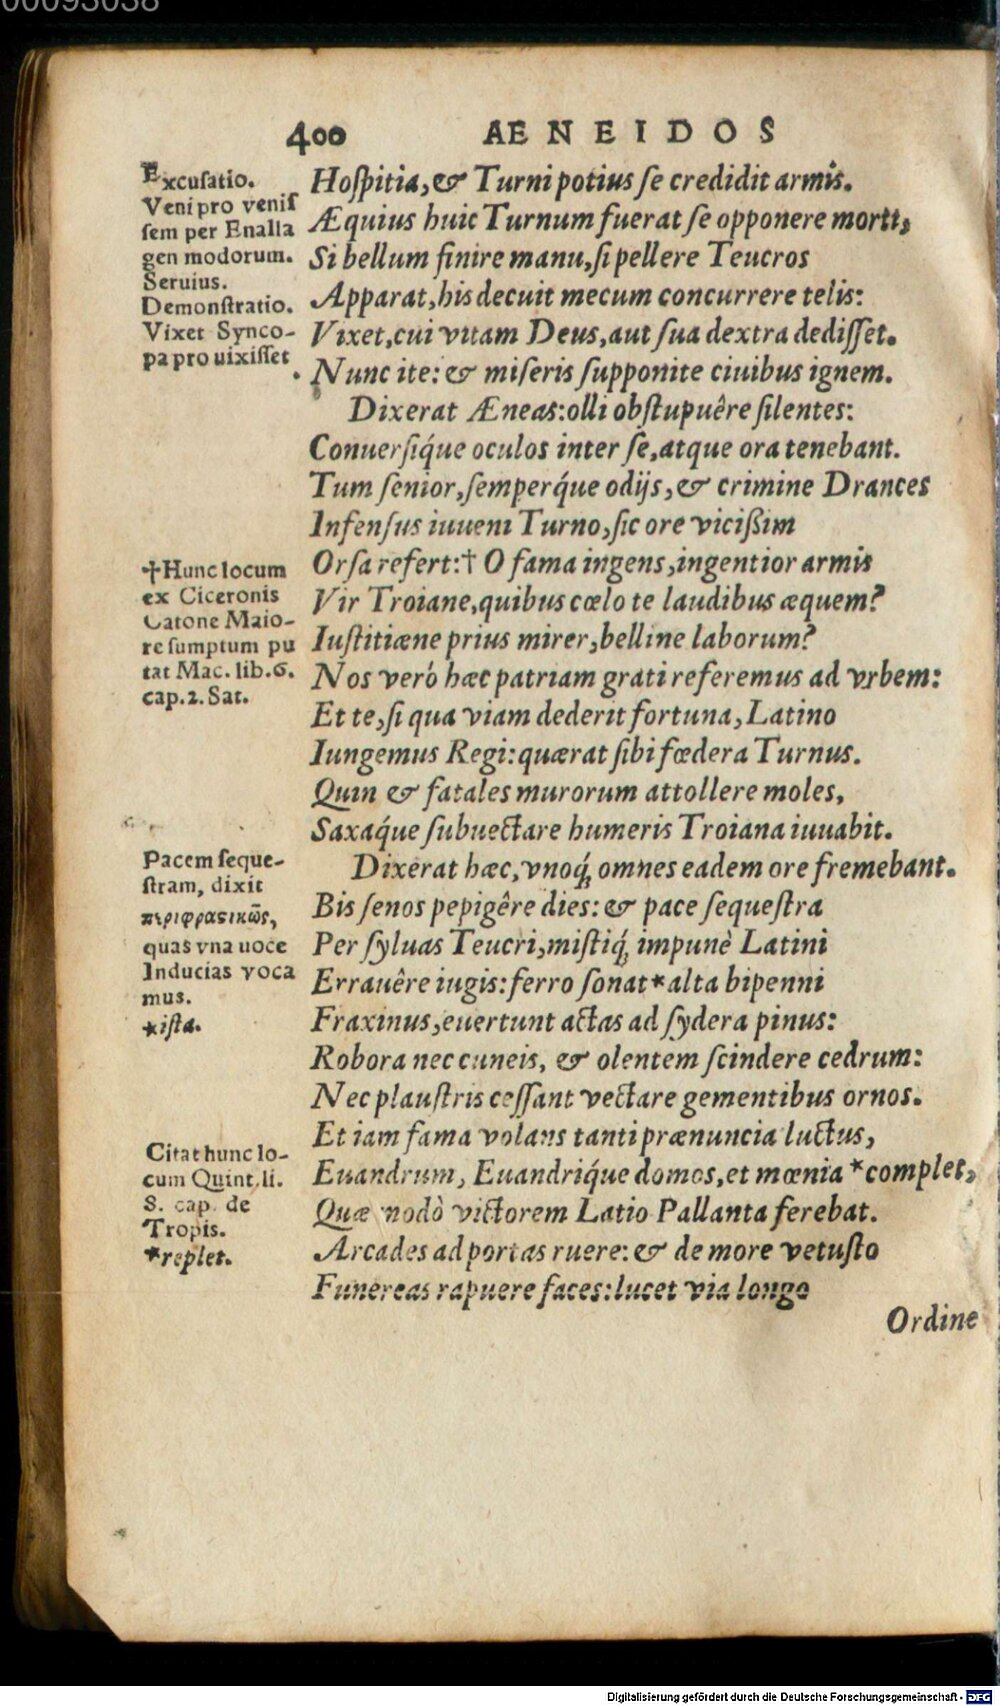 00093038
400 AENEIDOS
Excuſatio.
Veni pro veniſ
ſem per Enalla
gen modorum.
Seruius.
Demonſtratio.
Vixet Synco-
pa pro uixiſſet
Hoſpitia, & Turni potius ſe credidit armis.
Æquius huic Turnum fuerat ſe opponere morti,
Si bellum finire manu, ſi pellere Teucros
Apparat, his decuit mecum concurrere telis:
Vixet, cui vitam Deus, aut ſua dextra dediſſet.
Nunc ite: & miſeris ſupponite ciuibus ignem.
Dixerat Æneas: olli obſtupuêre ſilentes:
Conuerſiq́ue oculos inter ſe, atque ora tenebant.
Tum ſenior, ſemperq́ue odijs, & crimine Drances
Infenſus iuueni Turno, ſic ore viciſſim
†Hunc locum
ex Ciceronis
Catone Maio-
re ſumptum pu
tat Mac. lib.6.
cap.2. Sat.
Orſa refert:† O fama ingens, ingentior armis
Vir Troiane, quibus cœlo te laudibus æquem?
Iuſtitiæne prius mirer, belline laborum?
Nos verò hæc patriam grati referemus ad vrbem:
Et te, ſi qua viam dederit fortuna, Latino
Iungemus Regi: quærat ſibi fœdera Turnus.
Quin & fatales murorum attollere moles,
Saxaq́ue ſubuectare humeris Troiana iuuabit.
Pacem ſeque-
ſtram, dixit
περιφραστικῶς,
quas vna uoce
Inducias voca
mus.
*iſta.
Dixerat hæc, vnoq́; omnes eadem ore fremebant.
Bis ſenos pepigêre dies: & pace ſequeſtra
Per ſyluas Teucri, miſtiq́; impunè Latini
Errauêre iugis: ferro ſonat *alta bipenni
Fraxinus, euertunt actas ad ſydera pinus:
Robora nec cuneis, & olentem ſcindere cedrum:
Nec plauſtris ceſſant vectare gementibus ornos.
Citat hunc lo-
cum Quint. li.
8. cap. de
Tropis.
*replet.
Et iam fama volans tanti prænuncia luctus,
Euandrum, Euandriq́ue domos, et mœnia *complet,
Quæ modò victorem Latio Pallanta ferebat.
Arcades ad portas ruere: & de more vetuſto
Funereas rapuere faces: lucet via longo
Ordine
Digitalisierung gefördert durch die Deutsche Forschungsgemeinschaft - DFG